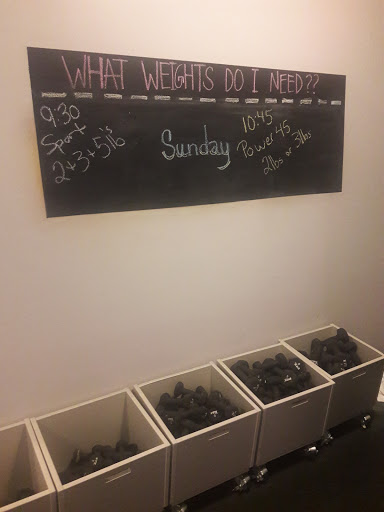 WHAT WEIGHTS DO I NEED??
9:30
Sport
2+3+5lb's
Sunday
10:45
Power 45
2lbs or 3lbs